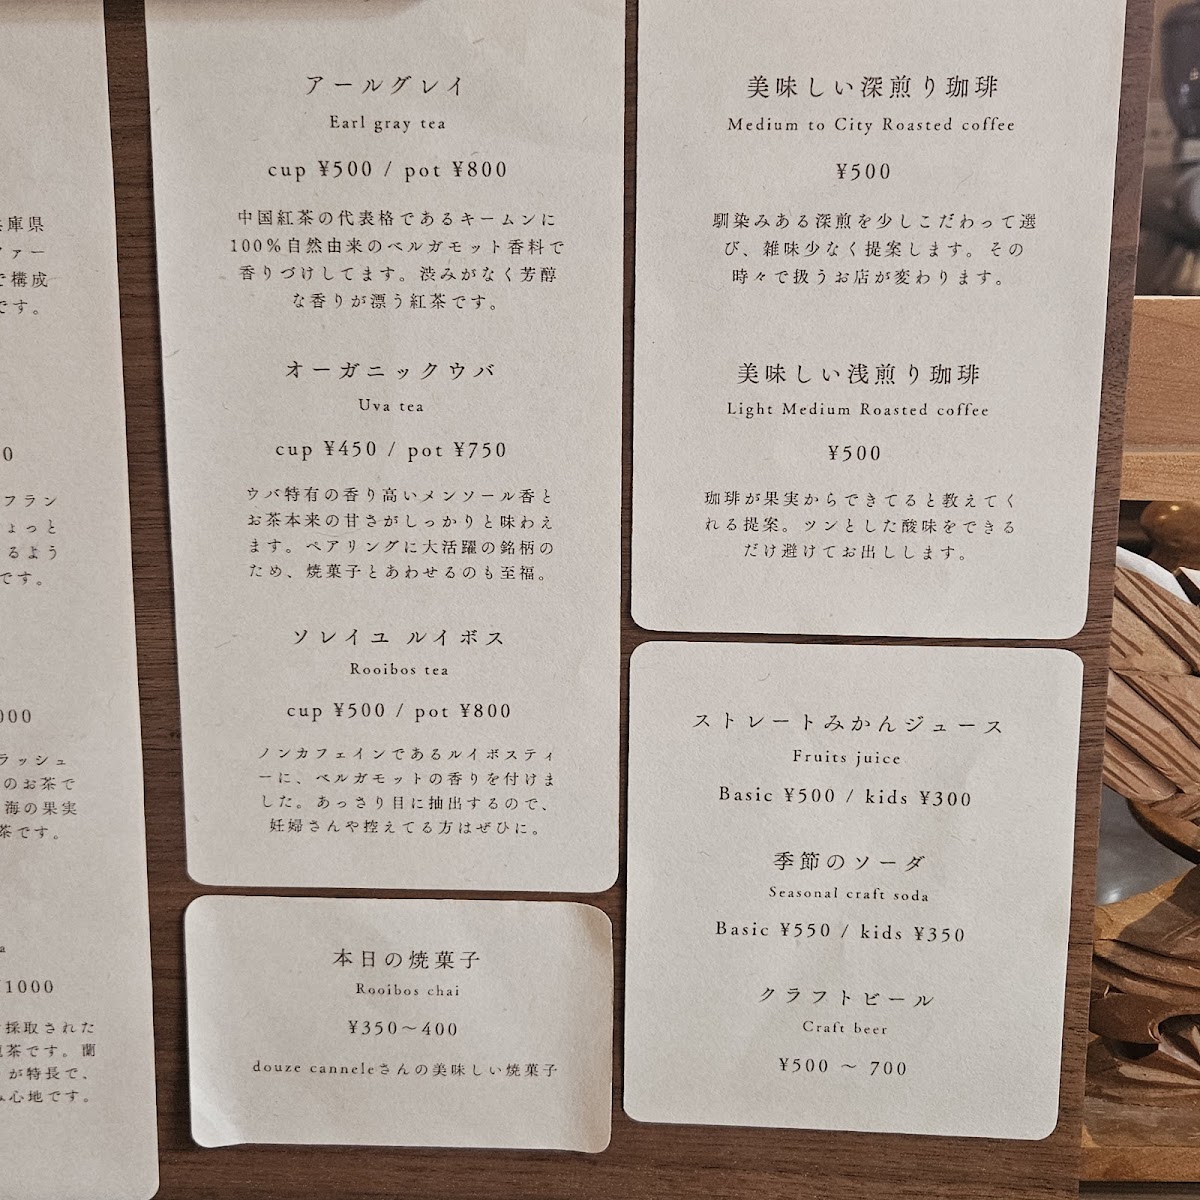 庫県
ファー
で構成
です。
0
フラン
ょっと
るよう
です。
000
ラッシュ
のお茶で
海の果実
茶です。
a
1000
採取された
茶です。蘭
が特長で、
心地です。
アールグレイ
Earl gray tea
cup ¥500 / pot ¥800
中国紅茶の代表格であるキームンに
100%自然由来のベルガモット香料で
香りづけしてます。渋みがなく芳醇
な香りが漂う紅茶です。
オーガニックウバ
Uva tea
cup ¥450 / pot ¥750
ウバ特有の香り高いメンソール香と
お茶本来の甘さがしっかりと味わえ
ます。ペアリングに大活躍の銘柄の
ため、焼菓子とあわせるのも至福。
ソレイユ ルイボス
Rooibos tea
cup ¥500 / pot ¥800
ノンカフェインであるルイボスティ
ーに、ベルガモットの香りを付けま
した。あっさり目に抽出するので、
妊婦さんや控えてる方はぜひに。
本日の焼菓子
Rooibos chai
¥350〜400
douze canneleさんの美味しい焼菓子
美味しい深煎り珈琲
Medium to City Roasted coffee
¥500
馴染みある深煎を少しこだわって選
び、雑味少なく提案します。その
時々で扱うお店が変わります。
美味しい浅煎り珈琲
Light Medium Roasted coffee
¥500
珈琲が果実からできてると教えてく
れる提案。ツンとした酸味をできる
だけ避けてお出しします。
ストレートみかんジュース
Fruits juice
Basic ¥500 / kids ¥300
季節のソーダ
Seasonal craft soda
Basic ¥550 / kids ¥350
クラフトビール
Craft beer
¥500 〜 700